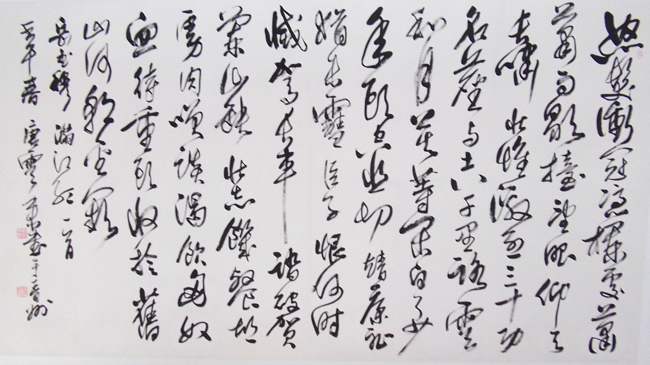 怒髮衝冠憑欄處蕭
蕭雨歇抬望眼仰天
長嘯壯懷激烈三十功
名塵與土八千里路雲
和月莫等閒白了少
年頭空悲切靖康恥
猶未雪臣子恨何時
滅駕長車踏破賀
蘭山缺壯志飢餐胡
虜肉笑談渴飲匈奴
血待重頭收拾舊
山河朝天闕
岳武穆滿江紅一首
春唐雲